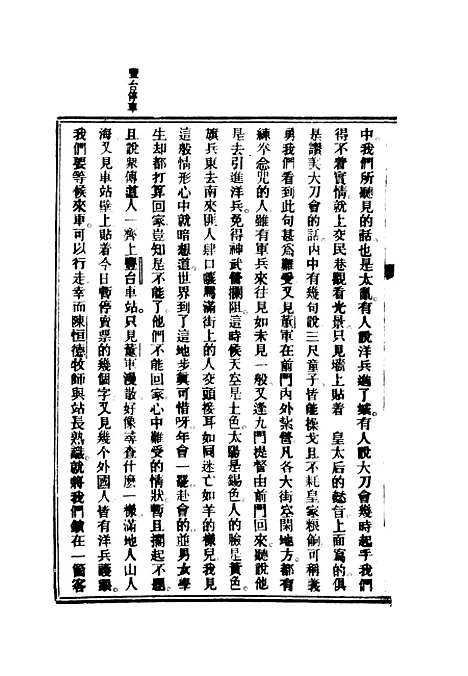 中我們所聽見的話也是太亂有人說洋兵進了城有人說大刀會幾時起手我們
得不着實情就上交民巷觀看光景只見牆上貼着 皇太后的懿旨上面寫的俱
是讚美大刀會的話內中有幾句說三尺童子皆能操戈且不耗皇家糧餉可稱義
勇我們看到此句甚為難受又見董軍在前門內外紮營凡各大街空闊地方都有
練拳念咒的人雖有軍兵來往見如未見一般又逢九門提督由前門回來聽說他
是去引進洋兵免得神武營攔阻這時候天空是土色太陽是錫色人的臉是黃色
旗兵東去南來匪人肆口護罵滿街上的人交頭接耳如同迷亡如羊的樣兒我見
這般情形心中就暗想道世界到了這地步眞可惜呀年會一罷赴會的並男女學
生却都打算回家豈知是不能了他們不能回家心中難受的情狀暫且擱起不題
且說衆傳道人一齊上豐台車站只見董軍漫散好像尋查什麼一樣滿地人山人
海又見車站壁上貼着今日暫停賣票的幾個字又見幾个外國人皆有洋兵護跟
我們要等候來車可以行走幸而陳恒德牧師與站長熟識就將我們鎖在一箇客
豐台停車